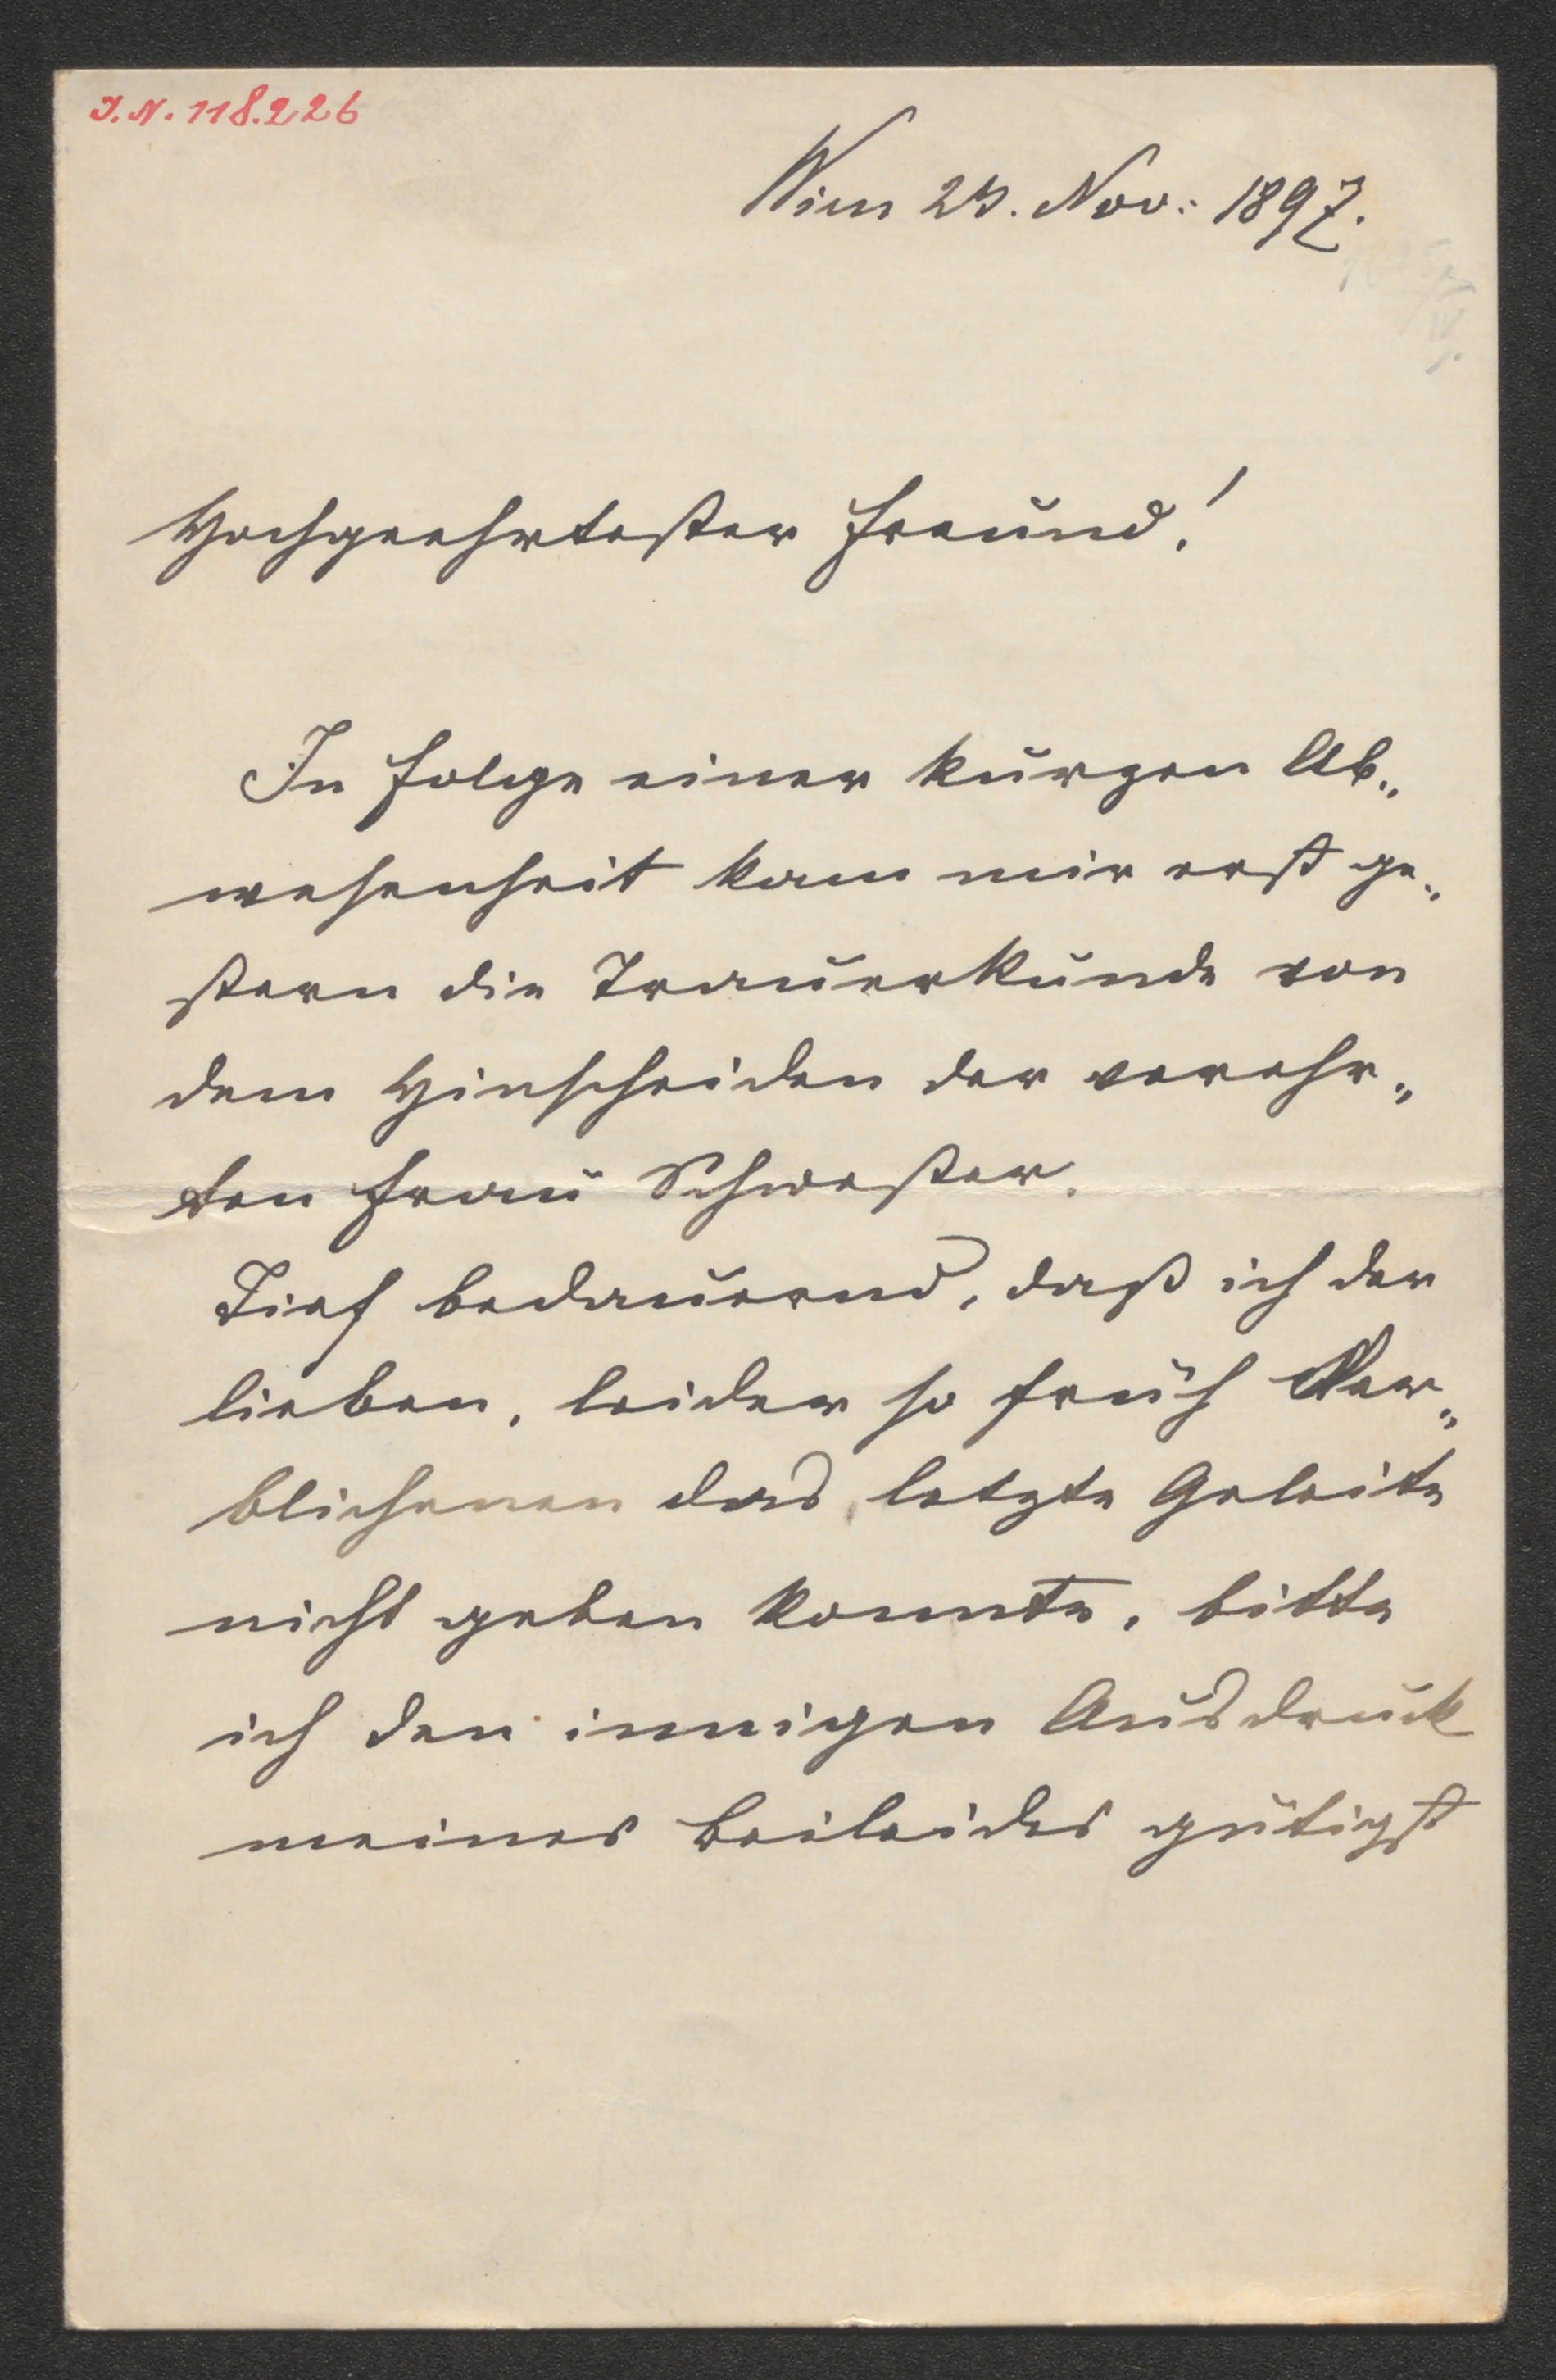 J.N. 118.226
Wien 23. Nov: 1897.
Hochgeehrtester Freund!
In Folge einer kurzen Ab„
wesenheit kam mir erst ge„
stern die Trauerkunde von
dem Hinscheiden der verehr„
ten Frau Schwester.
Tief bedauernd, daß ich der
lieben, leider so früh Ver„
blichenen das letzte Geleite
nicht geben konnte, bitte
ich den innigen Ausdruck
meines Beileides gütigst